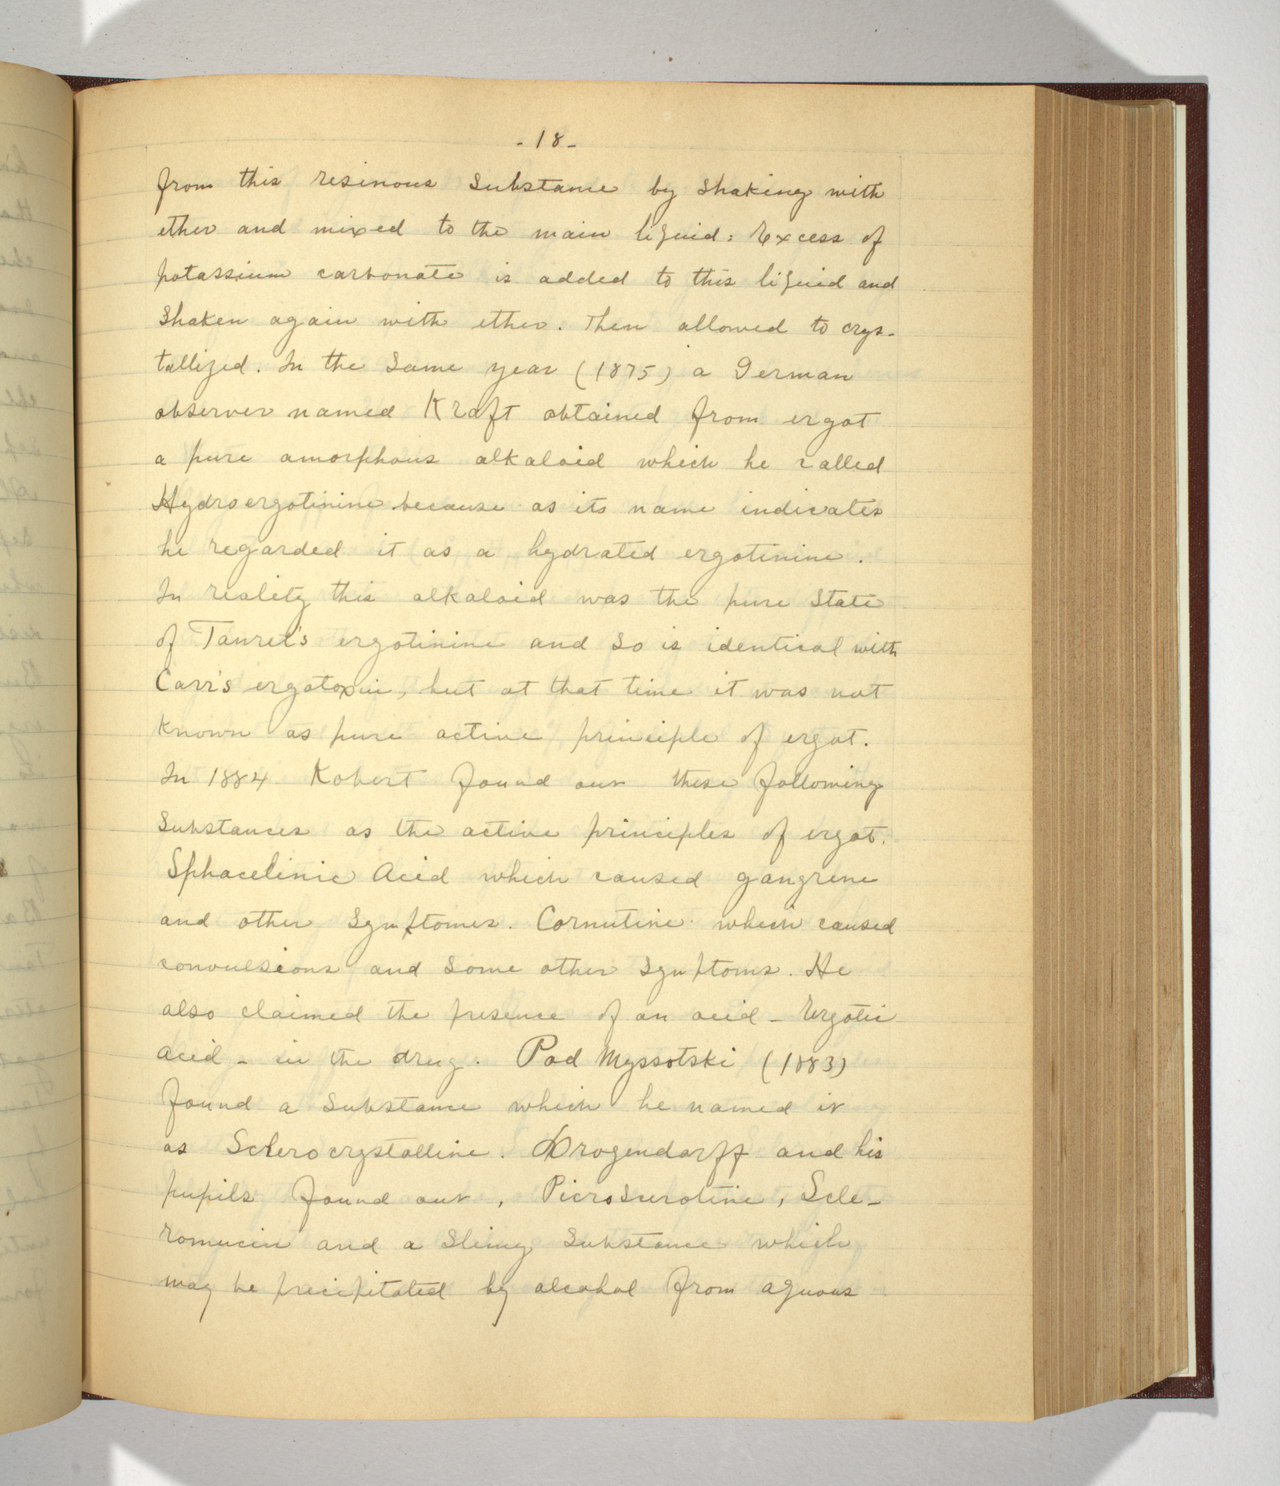 - 18 -
from this resinous substance by shaking with
ether and mixed to the main liquid: Excess of
potassium carbonate is added to this liquid and
shaken again with ether. Then allowed to crys-
tallized. In the same year (1875) a German
observer named Kraft obtained from ergot
a pure amorphous alkaloid which he called
Hydroergotinine because as its name indicates
he regarded it as a hydrated ergotinine.
In reality this alkaloid was the pure state
of Tanret's ergotinine and so is identical with
Carr's ergotoxin, but at that time it was not
known as pure active principle of ergot.
In 1884 Kobert found out these following
substances as the active principles of ergot.
Sphacelinic Acid which caused gangrene
and other symptomes. Cornutine which caused
convulsions and some other symptoms. He
also claimed the presence of an acid - Ergotic
acid - in the drug. Pod Myssotski (1883)
found a substance which he named it
as Sclerocrystalline. Drogendorff and his
pupils found out, Picrosclerotine, Scle-
romucin and a slimy substance which
may be precipitated by alcohol from aquous